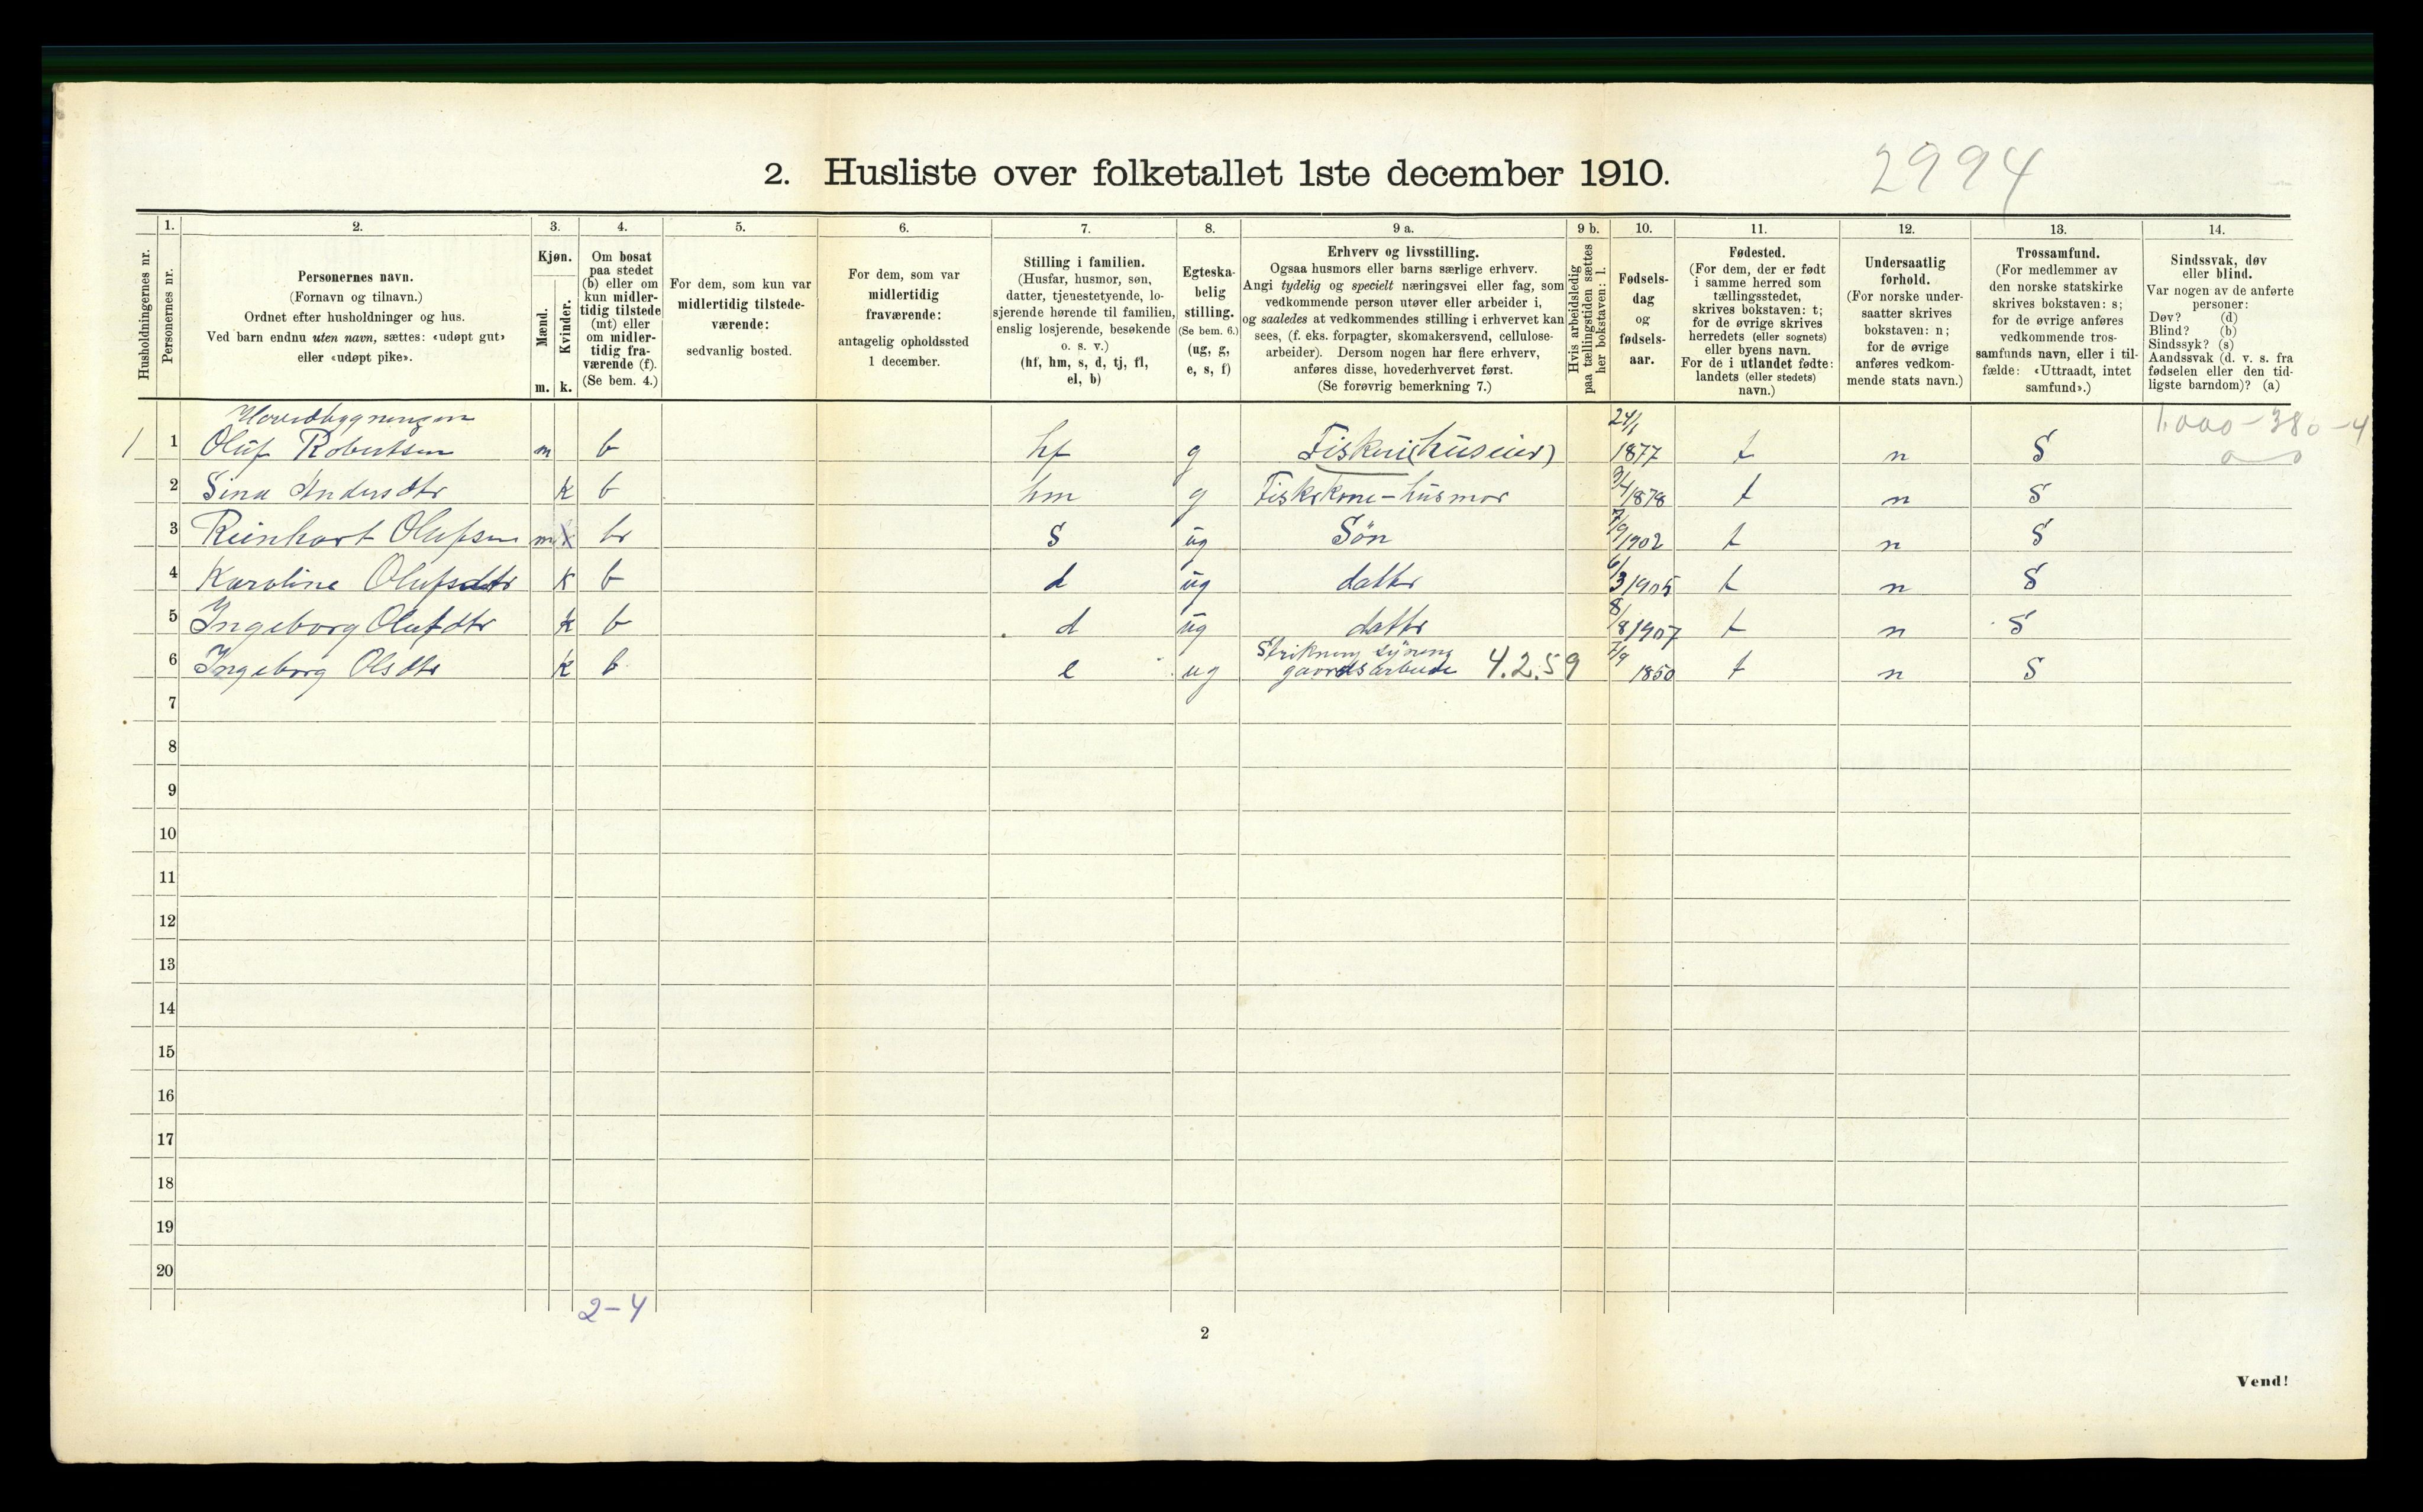 2994
2. Husliste over folketallet 1ste december 1910.
Husholdningernes nr.
1.
Personernes nr.
2.
Personernes navn.
(Fornavn og tilnavn.)
Ordnet efter husholdninger og hus.
Ved barn endnu uten navn, sættes: «udøpt gut»
eller «udøpt pike».
3.
Kjøn.
Mænd.
Kvinder.
m. k.
4.
Om bosat
paa stedet
(b) eller om
kun midler-
tidig tilstede
(mt) eller
om midler-
tidig fra-
værende (f).
(Se bem. 4.)
5.
For dem, som kun var
midlertidig tilstede-
værende:
sedvanlig bosted.
6.
For dem, som var
midlertidig
fraværende:
antagelig opholdssted
1 december.
7.
Stilling i familien.
(Husfar, husmor, søn,
datter, tjenestetyende, lo-
sjerende hørende til familien,
enslig losjerende, besøkende
o. s. v.)
(hf, hm, s, d, tj, fl,
el, b)
8.
Egteska-
belig
stilling.
(Se bem. 6.)
(ug, g,
e, s, f)
9 a.
Erhverv og livsstilling.
Ogsaa husmors eller barns særlige erhverv.
Angi tydelig og specielt næringsvei eller fag, som
vedkommende person utøver eller arbeider i,
og saaledes at vedkommendes stilling i erhvervet kan
sees, (f. eks. forpagter, skomakersvend, cellulose-
arbeider). Dersom nogen har flere erhverv,
anføres disse, hovederhvervet først.
(Se forøvrig bemerkning 7.)
9 b.
Hvis arbeidsledig
paa tællingstiden sættes
her bokstaven: l.
10.
Fødsels-
dag
og
fødsels-
aar.
11.
Fødested.
(For dem, der er født
i samme herred som
tællingsstedet,
skrives bokstaven: t;
for de øvrige skrives
herredets (eller sognets)
eller byens navn.
For de i utlandet fødte:
landets (eller stedets)
navn.)
12.
Undersaatlig
forhold.
(For norske under-
saatter skrives
bokstaven: n;
for de øvrige
anføres vedkom-
mende stats navn.)
13.
Trossamfund.
(For medlemmer av
den norske statskirke
skrives bokstaven: s;
for de øvrige anføres
vedkommende tros-
samfunds navn, eller i til-
fælde: «Uttraadt, intet
samfund».)
14.
Sindssvak, døv
eller blind.
Var nogen av de anførte
personer:
Døv? (d)
Blind? (b)
Sindssyk? (s)
Aandssvak (d. v. s. fra
fødselen eller den tid-
ligste barndom)? (a)
Hovedbygningen
1 1 Oluf Robertsen m b hf g Fisker (huseier) 24/1 1877 t n S 1.000-380-4
2 Sina Andersdtr k b hm g Fiskrkone - husmor 3/4 1878 t n S
3 Reinhart Olufsen m b s ug Søn 7/9 1902 t n S
4 Karoline Olufsdtr k b d ug datter 6/3 1905 t n S
5 Ingeborg Olufdtr k b d ug datter 8/8 1907 t n S
6 Ingeborg Olsdtr k b e ug Strikning syning
gaardsarbeide 4.2.59 7/9 1850 t n S
7
8
9
10
11
12
13
14
15
16
17
18
19
20
2-4
2
Vend!